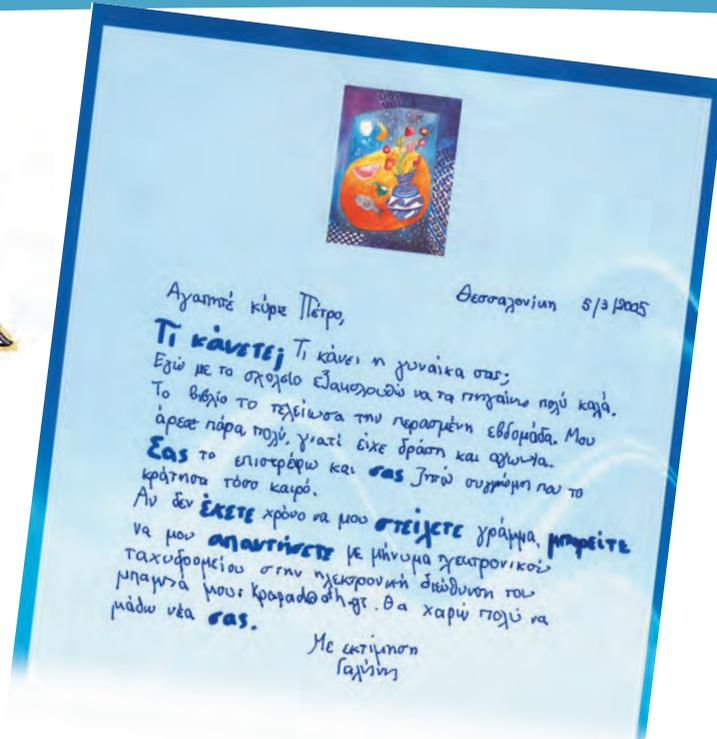 Θεσσαλονίκη 5/3/2005
Αγαπητέ κύριε Πέτρο,
Τι κάνετε; Τι κάνει η γυναίκα σας;
Εγώ με το σχολείο εξακολουθώ να τα πηγαίνω πολύ καλά.
Το βιβλίο το τελείωσα την περασμένη εβδομάδα. Μου
άρεσε πάρα πολύ, γιατί είχε δράση και αγωνία.
Σας το επιστρέφω και σας ζητώ συγγνώμη που το
κράτησα τόσο καιρό.
Αν δεν έχετε χρόνο να μου στείλετε γράμμα, μπορείτε
να μου απαντήσετε με μήνυμα ηλεκτρονικού
ταχυδρομείου στην ηλεκτρονική διεύθυνση του
μπαμπά μου: kpapad@oth.gr. Θα χαρώ πολύ να
μάθω νέα σας.
Με εκτίμηση
Γαλήνη